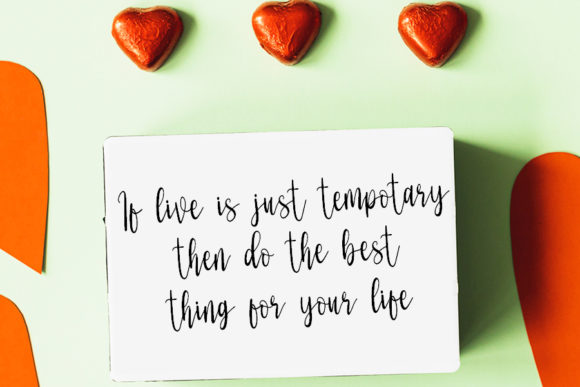 If live is just tempotary
then do the best
thing for your life